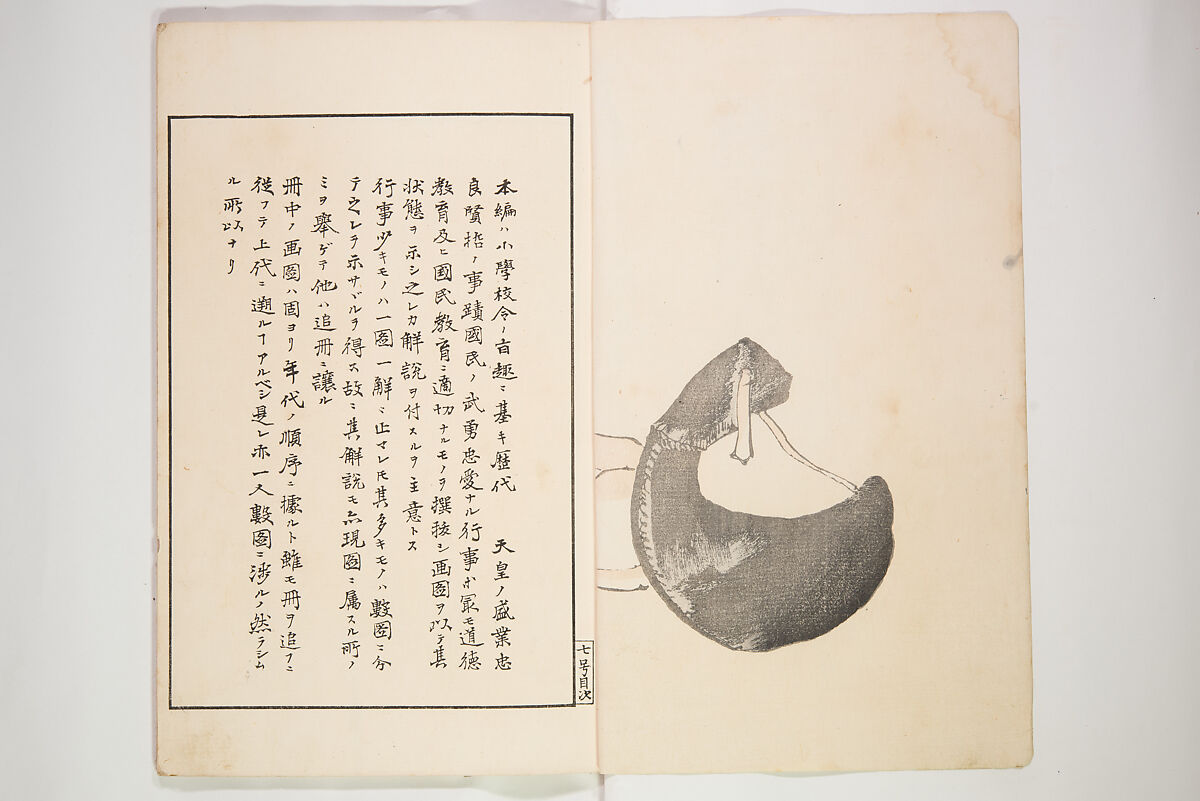 本編ハ小學校令ノ旨趣ニ基キ歴代　天皇ノ盛業忠
良賢哲ノ事蹟國民ノ武勇忠愛ナル行事等最モ道德
教育及ヒ國民教育ニ適切ナルモノヲ撰拔シ画圖ヲ以テ其
狀態ヲ示シ之レカ解說ヲ付スルヲ主意トス
行事少キモノハ一圖一解ニ止マレ𪜈其多キモノハ數圖ニ分
テ之レヲ示サヾルヲ得ス故ニ其解說モ亦現圖ニ属スル所ノ
ミヲ舉ゲテ他ハ追冊ニ讓ル
冊中ノ画圖ハ固ヨリ年代ノ順序ニ據ルト雖モ冊ヲ追フニ
從フテ上代ニ遡ルヿアルベシ是レ亦一人數圖ニ涉ルノ然ラシム
ル所以ナリ
七号目次